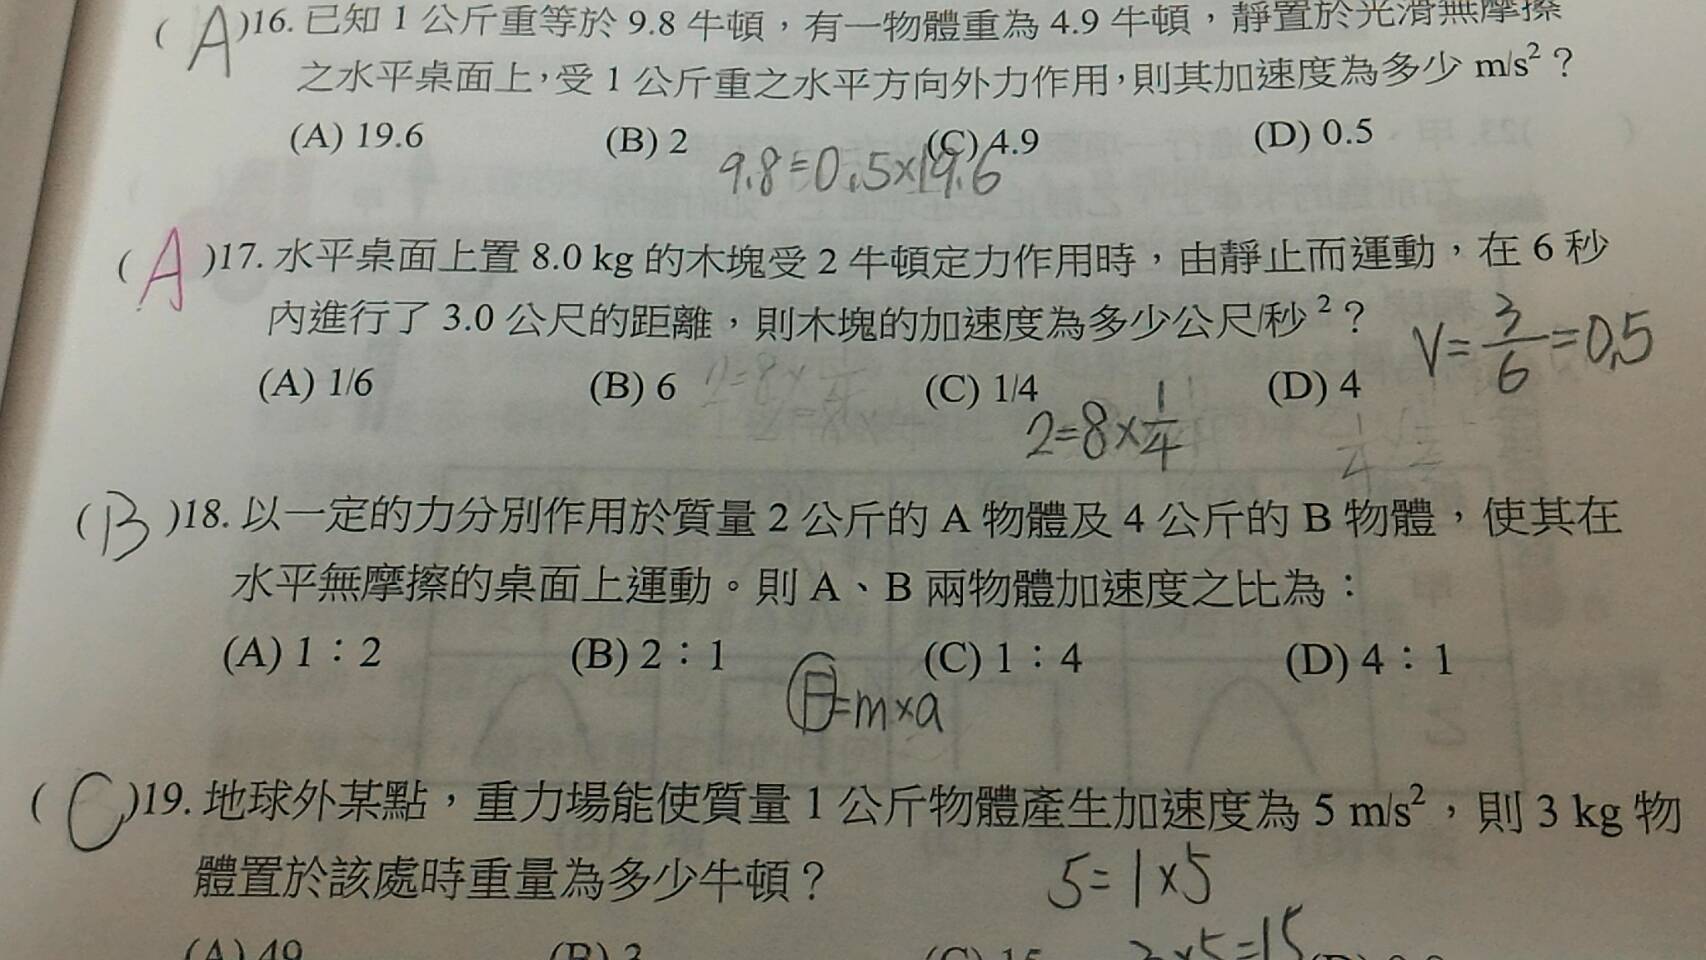 (A)16. 已知 1 公斤重等於 9.8 牛頓，有一物體重為 4.9 牛頓，靜置於光滑無摩擦
之水平桌面上，受 1 公斤重之水平方向外力作用，則其加速度為多少 m/s²？
(A) 19.6 (B) 2 (C) 4.9 (D) 0.5
9.8=0.5×19.6
(A)17. 水平桌面上置 8.0 kg 的木塊受 2 牛頓定力作用時，由靜止而運動，在 6 秒
內進行了 3.0 公尺的距離，則木塊的加速度為多少公尺/秒²？
V=3/6=0.5
(A) 1/6 (B) 6 (C) 1/4 (D) 4
2=8×1/4
(B)18. 以一定的力分別作用於質量 2 公斤的 A 物體及 4 公斤的 B 物體，使其在
水平無摩擦的桌面上運動。則 A、B 兩物體加速度之比為：
(A) 1：2 (B) 2：1 (C) 1：4 (D) 4：1
F=m×a
(C)19. 地球外某點，重力場能使質量 1 公斤物體產生加速度為 5 m/s²，則 3 kg 物
體置於該處時重量為多少牛頓？
5=1×5
(A) 49 (B) 3 (C) 15 3×5=15